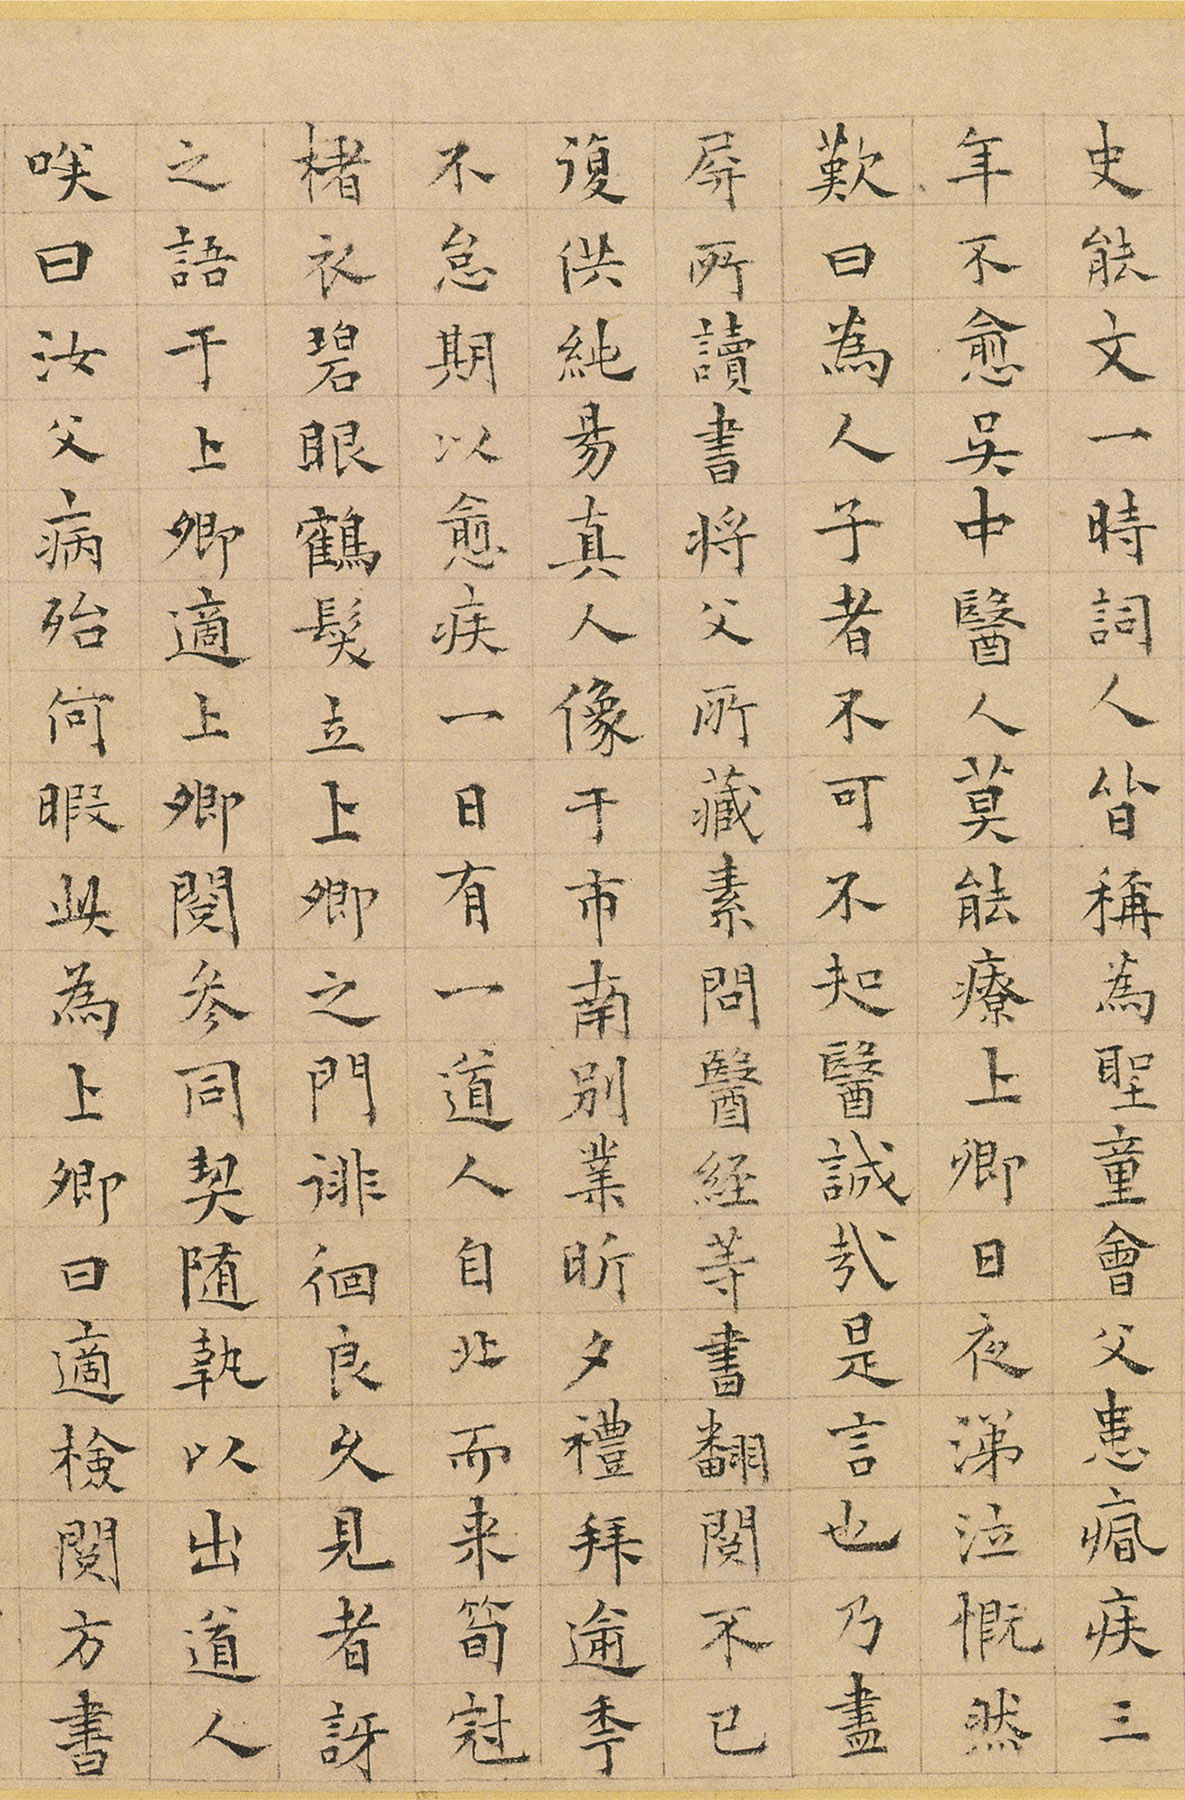 史能文一時詞人皆稱為聖童會父患㾽疾三
年不愈吳中醫人莫能療上卿日夜涕泣慨然
歎曰為人子者不可不知醫誠哉是言也乃盡
屏所讀書將父所藏素問醫經等書翻閱不已
復供純昜真人像于市南別業昕夕禮拜逾季
不怠期以愈疾一日有一道人自北而来筍冠
楮衣碧眼鶴髮立上卿之門徘徊良久見者訝
之語于上卿適上卿閱參同契随執以出道人
唉曰汝父病殆何暇此為上卿曰適檢閱方書